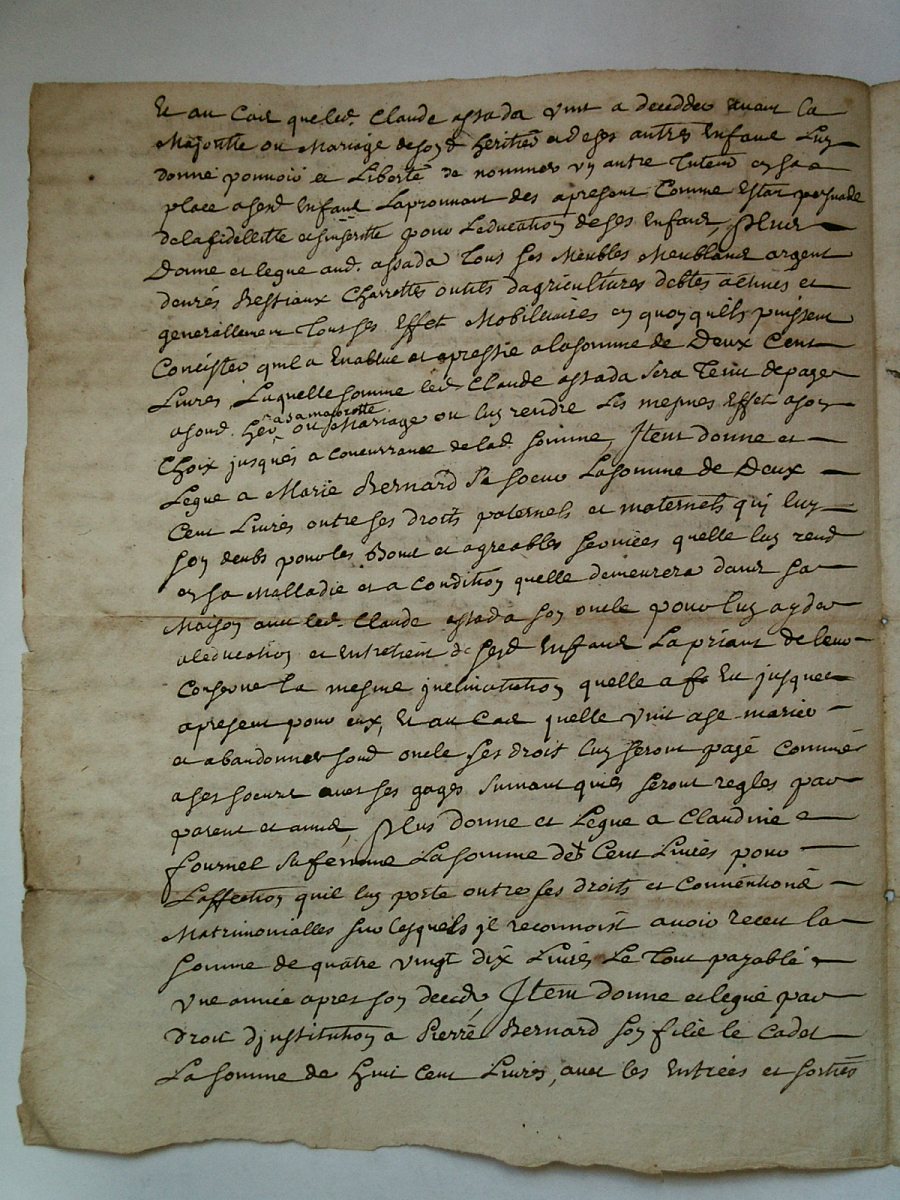 Et au Cas que led. Claude assada vint a decedder avant la
Majoritte ou Mariage de son d. heritier et de ses autres Enfans Luy
donne pouvoir et Liberté de nommer un autre Tuteur en sa
place a sesd. Enfans Lapprouvant des apresent Comme Estat persuadé
de la fidellitte et sinseritte pour Leducation de ses Enfans, Plus
Donne et legue aud. assada Tous ses Meubles Meublans argent
denrés Bestiaux Charrettes outils dagricultures debtes actives et
generallement Tous ses Effet Mobiliaires en quoy quils puissent
Concister quil a Enablué et apressié a la somme de Deux Cent
Livres, Laquelle somme led. Claude assada sera Tenu de payer
a sond. her. a sa majoritte ou Mariage ou luy rendre Les mesmes Effet a son
Choix jusques a concurrance de lad. somme, Item donne et
Legue a Marie Bernard Sa soeur La somme de Deux
Cent Livres outre ses droits paternels et maternels qui luy
son deubs pour les Bons et agreables services quelle luy rend
en sa Malladie et a Condition quelle demeurera dans sa
Maison avec led. Claude assada son oncle pour luy ayder
a leducation et Entretient de sesd. Enfans La priant de leur
Conserver la mesme jnclination quelle a Eu jusques
apresent pour eux, Et au Cas quelle vint a se marier
et abandonner sond. oncle ses droit luy seront payé comme
a ses soeurs avec ses gages suivant quies seront regles par
parent et amis, Plus donne et Legue a Claudine
fournel sa femme La somme de Cent Livres pour
Laffection quil luy porte outre ses droits et Conventions
Matrimonialles sur lesquels jl reconnoist avoir receu la
somme de quatre vingt dix Livres Le Tout payable
une année apres son deced, Item donne et legue par
droit djnstitution a Pierre Bernard son fils le Cadet
La somme de huit Cent Livres, avec les Entrées et sorties